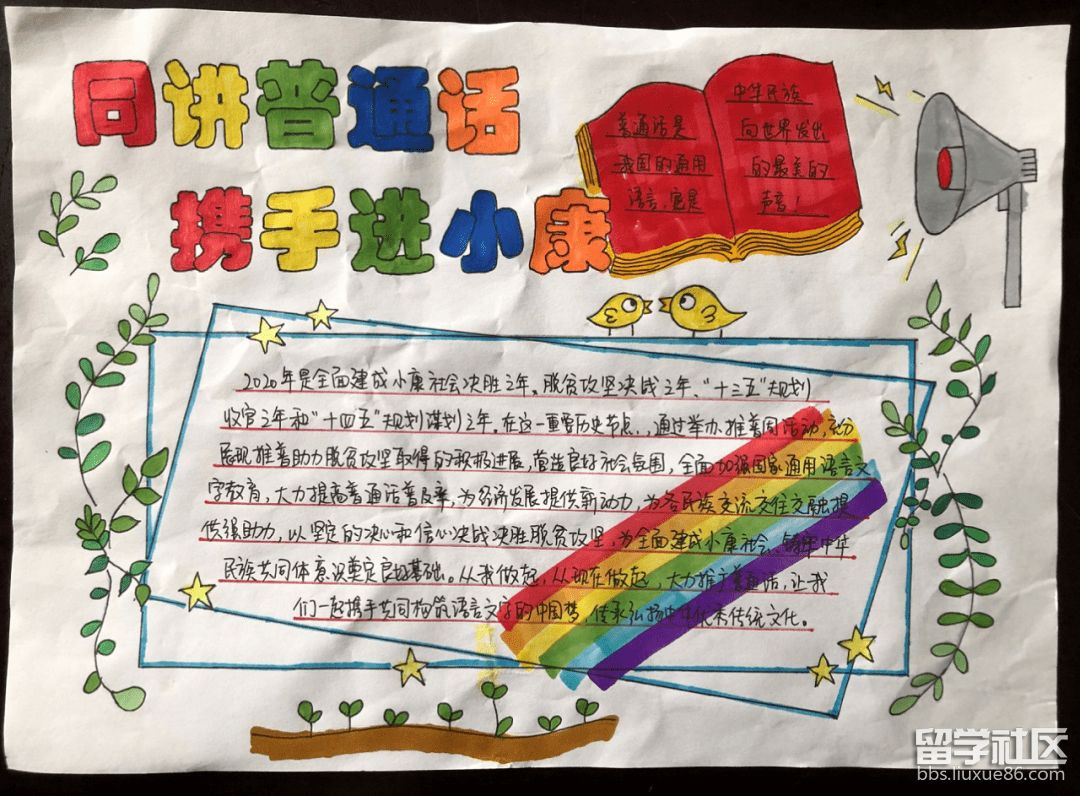 同讲普通话
携手进小康
普通话是
我国的通用
语言,它是
中华民族
向世界发出
的最美的
声音!
2020年是全面建成小康社会决胜之年、脱贫攻坚决战之年、“十三五”规划
收官之年和“十四五”规划谋划之年。在这一重要历史节点,通过举办推普周活动,充分
展现推普助力脱贫攻坚取得的积极进展,营造良好社会氛围,全面加强国家通用语言文
字教育,大力提高普通话普及率,为经济发展提供新动力,为各民族交流交往交融提
供强助力,以坚定的决心和信心决战决胜脱贫攻坚,为全面建成小康社会、铸牢中华
民族共同体意识奠定良好基础。从我做起,从现在做起,大力推广普通话,让我
们一起携手共同构筑语言文字的中国梦,传承弘扬中华优秀传统文化。
留学社区
bbs.liuxue86.com